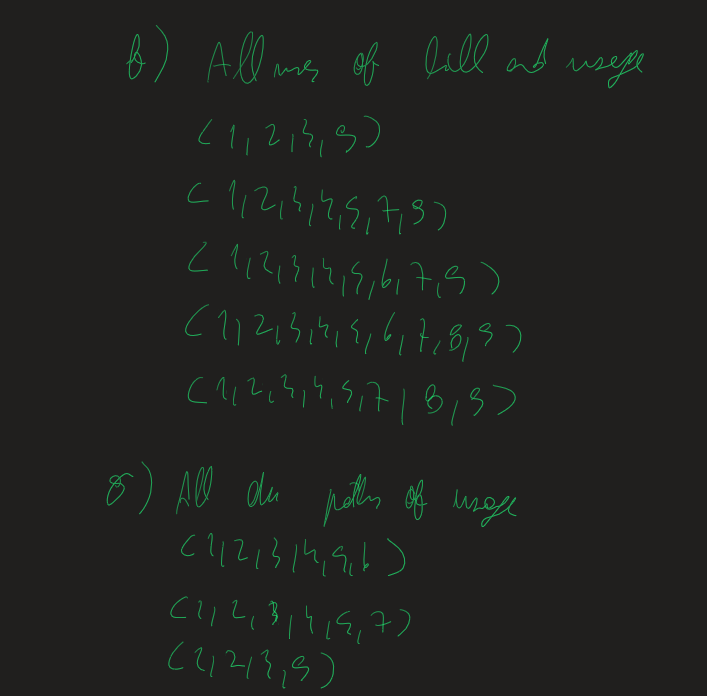 f) All uses of bill and usage
(1,2,3,9)
(1,2,3,4,5,7,9)
(1,2,3,4,5,6,7,9)
(1,2,3,4,5,6,7,8,9)
(1,2,3,4,5,7,8,9)
g) All du paths of usage
(1,2,3,4,5,6)
(1,2,3,4,5,7)
(1,2,3,9)